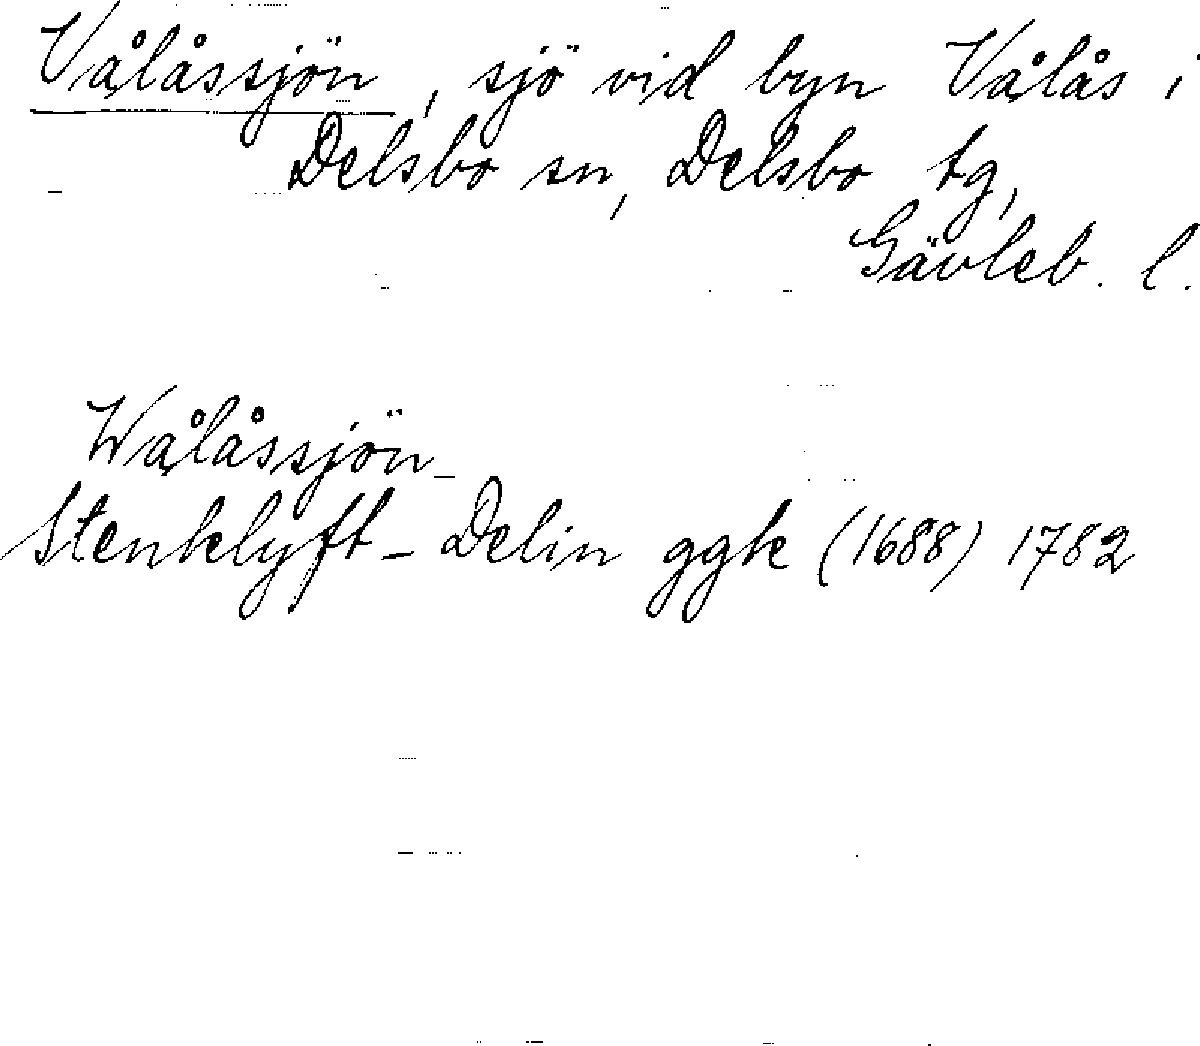 Vålåssjön, sjö vid byn Vålås i
Delsbo sn, Delsbo tg,
Gävleb. l.
Wålåssjön
Stenklyft - Delin ggk (1688) 1782